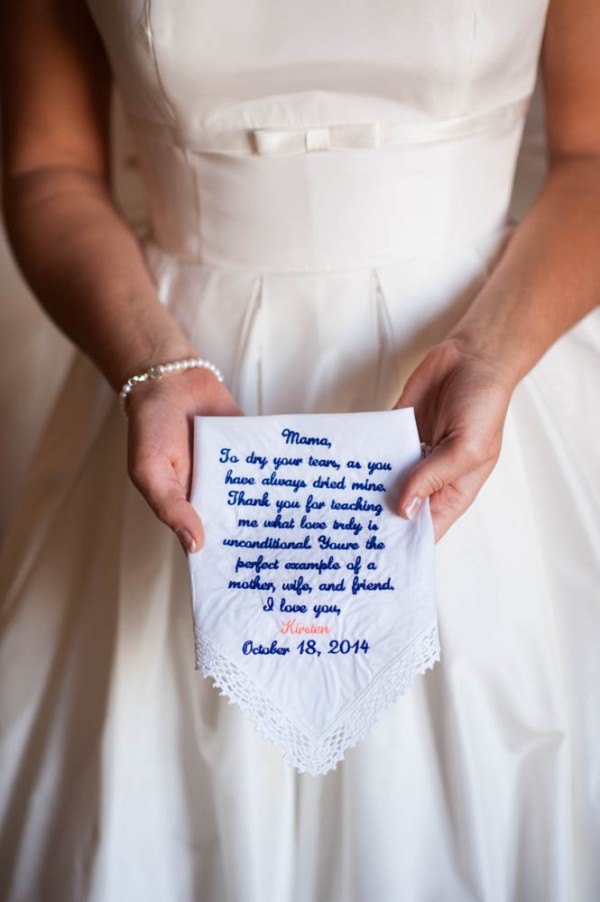 Mama,
To dry your tears, as you
have always dried mine.
Thank you for teaching
me what love truly is
unconditional. Youre the
perfect example of a
mother, wife, and friend.
I love you,
Kirsten
October 18, 2014